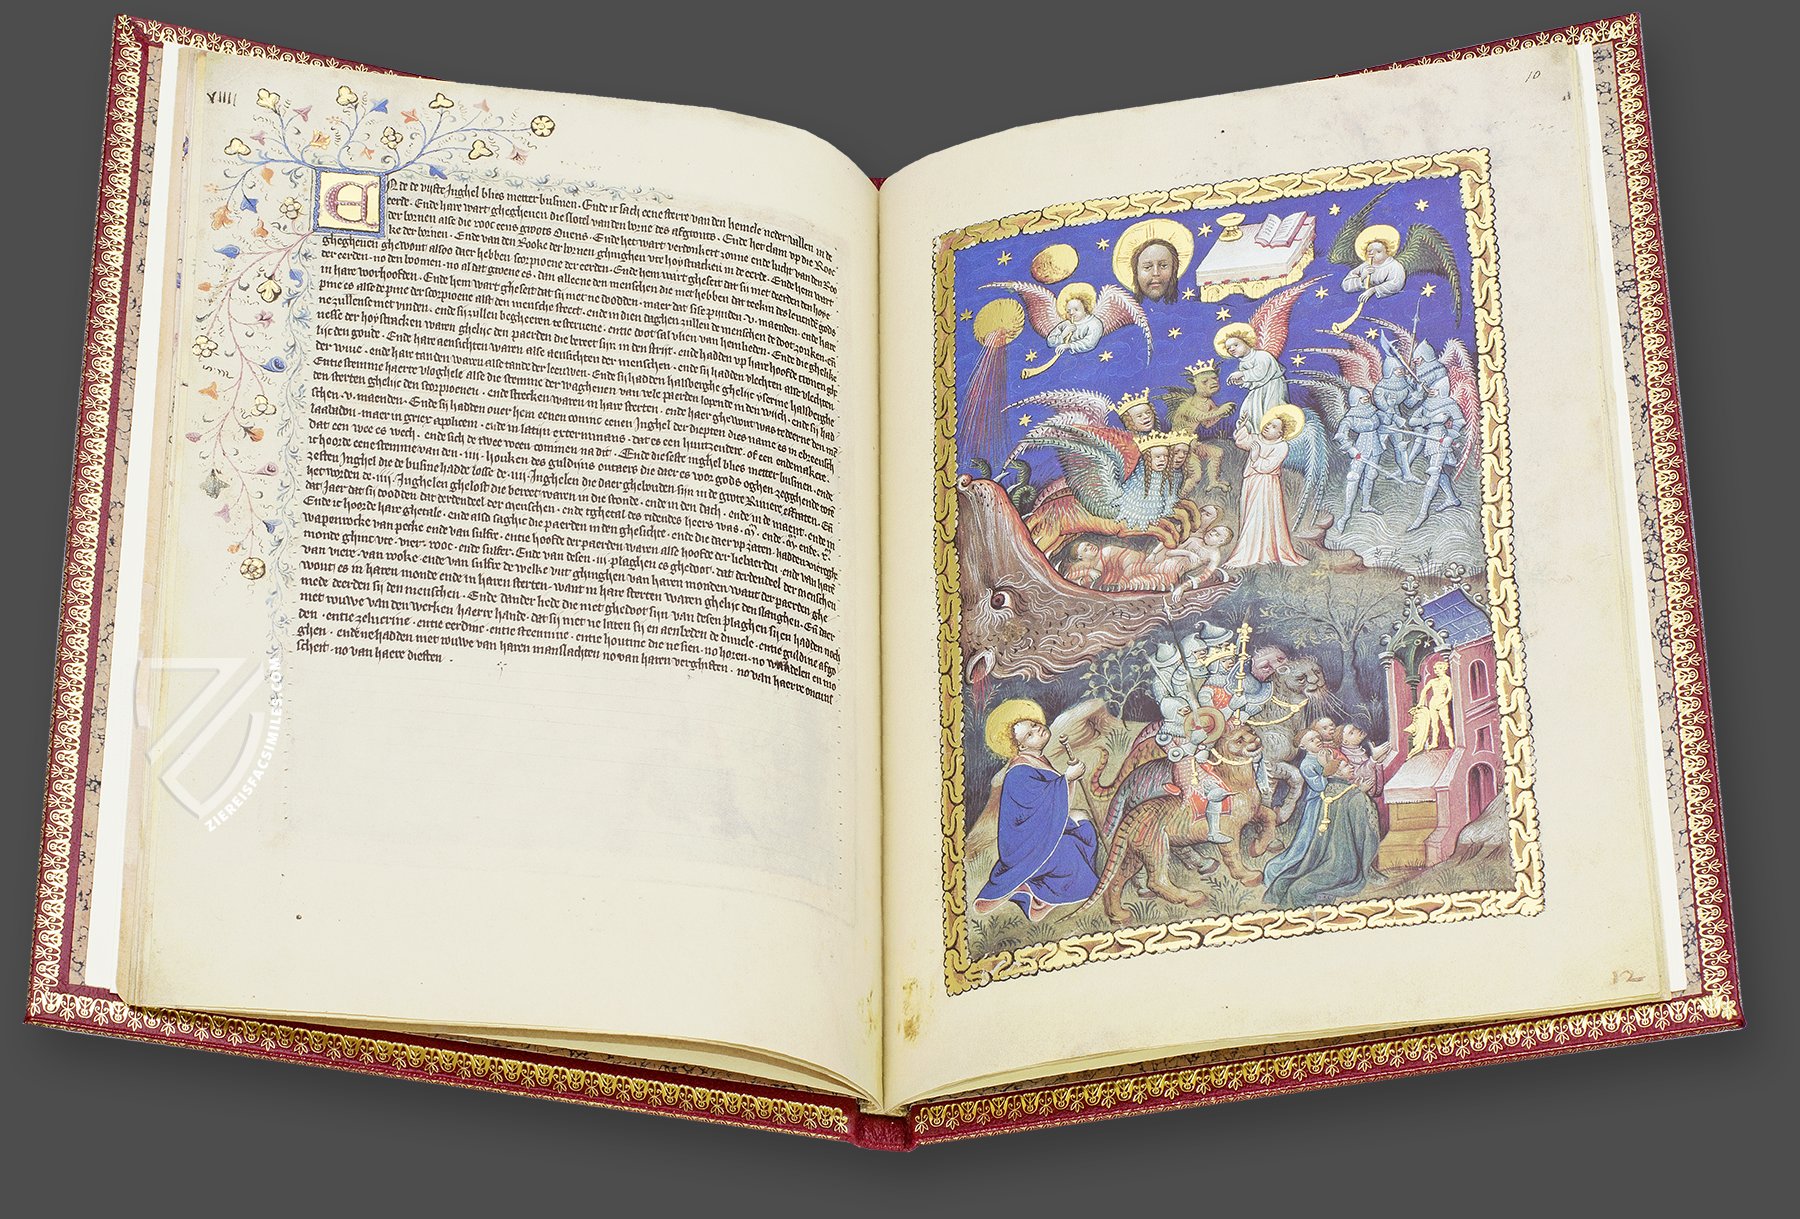 VIIII
Ende de vijfte Inghel blies metter businen · Ende ic sach eene sterre van den hemele neder vallen in de
eerde · Ende hare wart ghegheuen die slotel van den des afgronts · Ende het clam vp die Rooc
der alse die rooc eens groots Ouens · Ende het wart verdonkert zonne ende lucht van den Roo
ke der · Ende van den Rooke der ghinghen vte hoystacken in de eerde · Ende hem wart
ghegheuen ghewout alsoo daer hebben scorpioene der eerden · Ende hem wart gheseit dat sij niet deerden den hoye
der eerden · no den boomen · no al dat groene es · dan alleene den menschen die niet hebben dat teekin des leuende gods
in hare voorhoofden · Ende hem wart gheseit dat sij niet ne doodden · maer dat sise pijnden · v · maenden · ende hare
pine es alse de pine der scorpioene alst den mensche steect · ende in dien daghen zullen de menschen de doot zouken · en
ne zullense niet vinden · ende sij zullen begheeren te steruene · entie doot sal vlien van hemlieden · Ende die ghelike
nesse der hoystacken waren ghelijc den paerden die bereet sijn in den strijt · ende hadden vp hare hoofde cronen ghe
lijc den goude · Ende hare aensichten waren alse aensichten der menschen · ende sij hadden vlechten alse vlechten
der wiue · ende hare tanden waren alse tande der leeuwen · Ende sij hadden halsberghe ghelijc yserine halsberghe
Entie stemme haerre vloghele alse die stemme der waghenen van vele paerden lopende in den wijch · ende sij had
den sterten ghelijc den scorpioenen · ende strecken waren in hare sterten · ende haer ghewout was te deerne den
schen · v · maenden · Ende sij hadden ouer hem eenen coninc eenen Inghel der diepten dies name es in ebreusch
laabadon · maer in griex appolioen · ende in latijn exterminans · dat es een huutzendere · of een endemakere
dat een wee es wech · ende sich de twee ween commen na dit · Ende die seste inghel blies metter businen · ende
ic hoorde eene stemme van den · iiij · houken des guldijns outaers die daer es vor gods oghen · zegghende
zesten Inghel die de busine hadde losse de · iiij · Inghelen die daer ghebonden sijn in de groote Riuiere eufraten · En
het worden de · iiij · Inghelen ghelost die bereet waren in die stonde · ende in den dach · ende in de maent · ende in
dat Jaer dat sij doodden dat derdendeel der menschen · ende tghetal des ridendes heers was ·
Ende ic hoorde hare ghetale · ende also saghic die paerden in den ghesichte · ende die daer vp zaten · hadden
wapenrocke van pecke ende van sulfre · entie hoofde der paerden waren alse hoofde der liebaerden · ende van haren
monde ghinc vte · vier · rooc · ende sulfer · Ende van desen · iij · plaghen es ghedoot · dat derdendeel der menschen
van viere · van roke · ende van sulfre de welke vut ghinghen van haren monden want der paerden ghe
wout es in haren monde ende in haren sterten · want in hare sterten waren ghelijc den slanghen · En daer
mede deerden sij den menschen · Ende dander liede die niet ghedoot sijn van desen plaghen sij en hadden noch
niet rouwe van den werken haerre hande · dat sij niet ne laten sij en aenbeden de duuele · entie guldine afgo
den · entie zeluerine · entie eerdine · entie steeninne · entie houtine die ne sien · no horen · no wandelen en mo
ghen · ende ne hadden niet rouwe van haren manslachten no van haren verghiften · no van haerre oncuus
scheit · no van haere dieften ·
10
12
ZIEREISFACSIMILES.COM